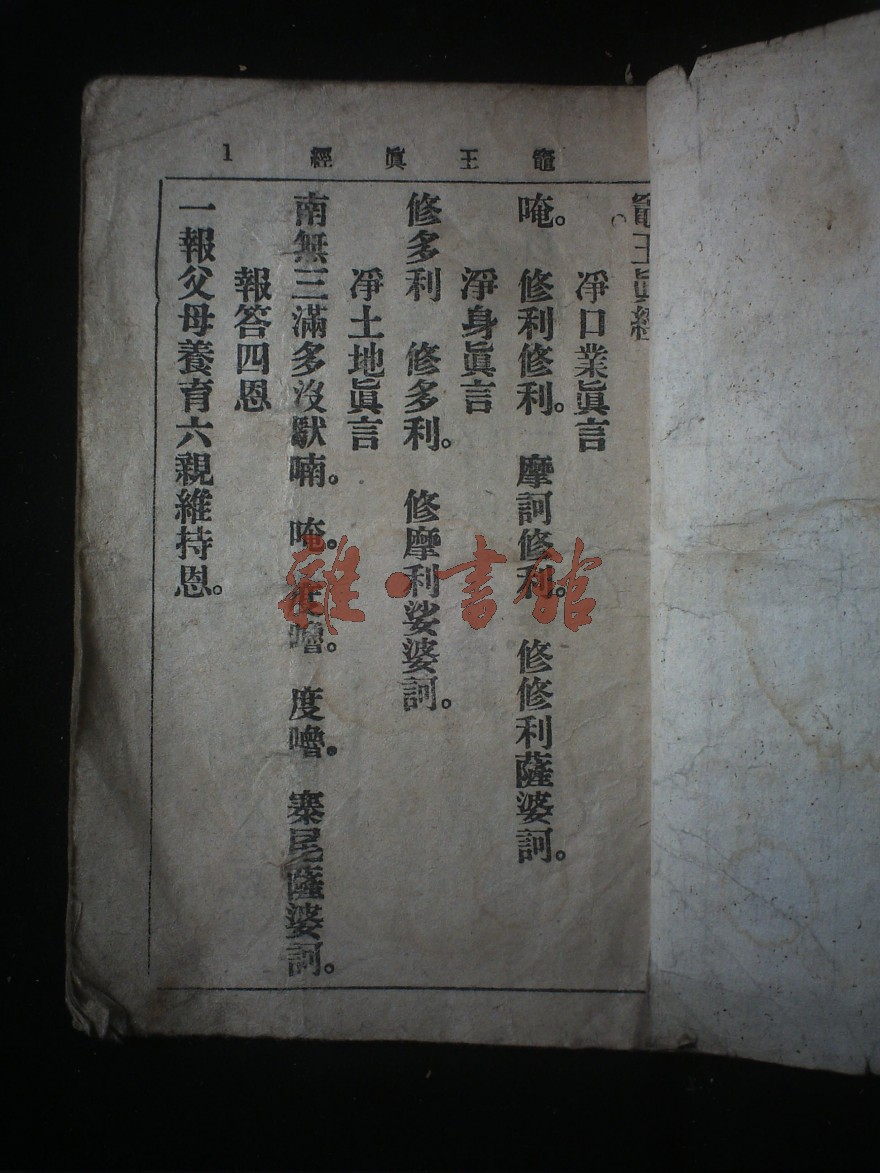 竈王眞經 1
竈王眞經
凈口業眞言
唵。 修利修利。 摩訶修利。 修修利薩婆訶。
淨身眞言
修多利 修多利。 修摩利娑婆訶。
凈土地眞言
南無三滿多沒喃。 唵。 度嚕。 度嚕。 薩婆訶。
報答四恩
一報父母養育六親維持恩。
雜·書館